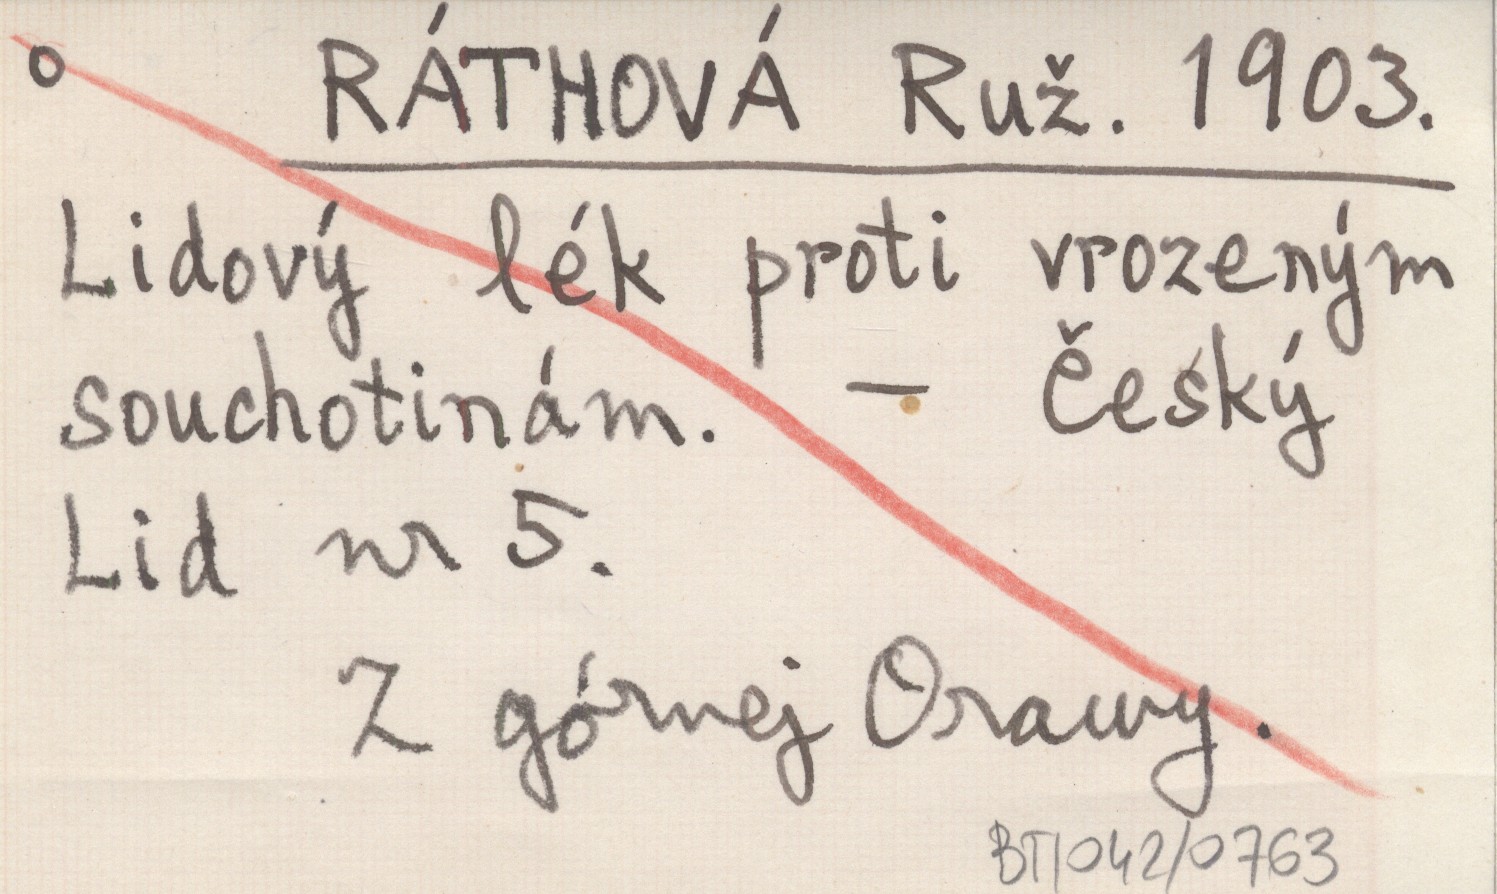 RÁTHOVÁ Ruž. 1903.
Lidový lék proti vrozeným
souchotinám. — Český
Lid nr 5.
Z górnej Orawy.
BT/042/0763